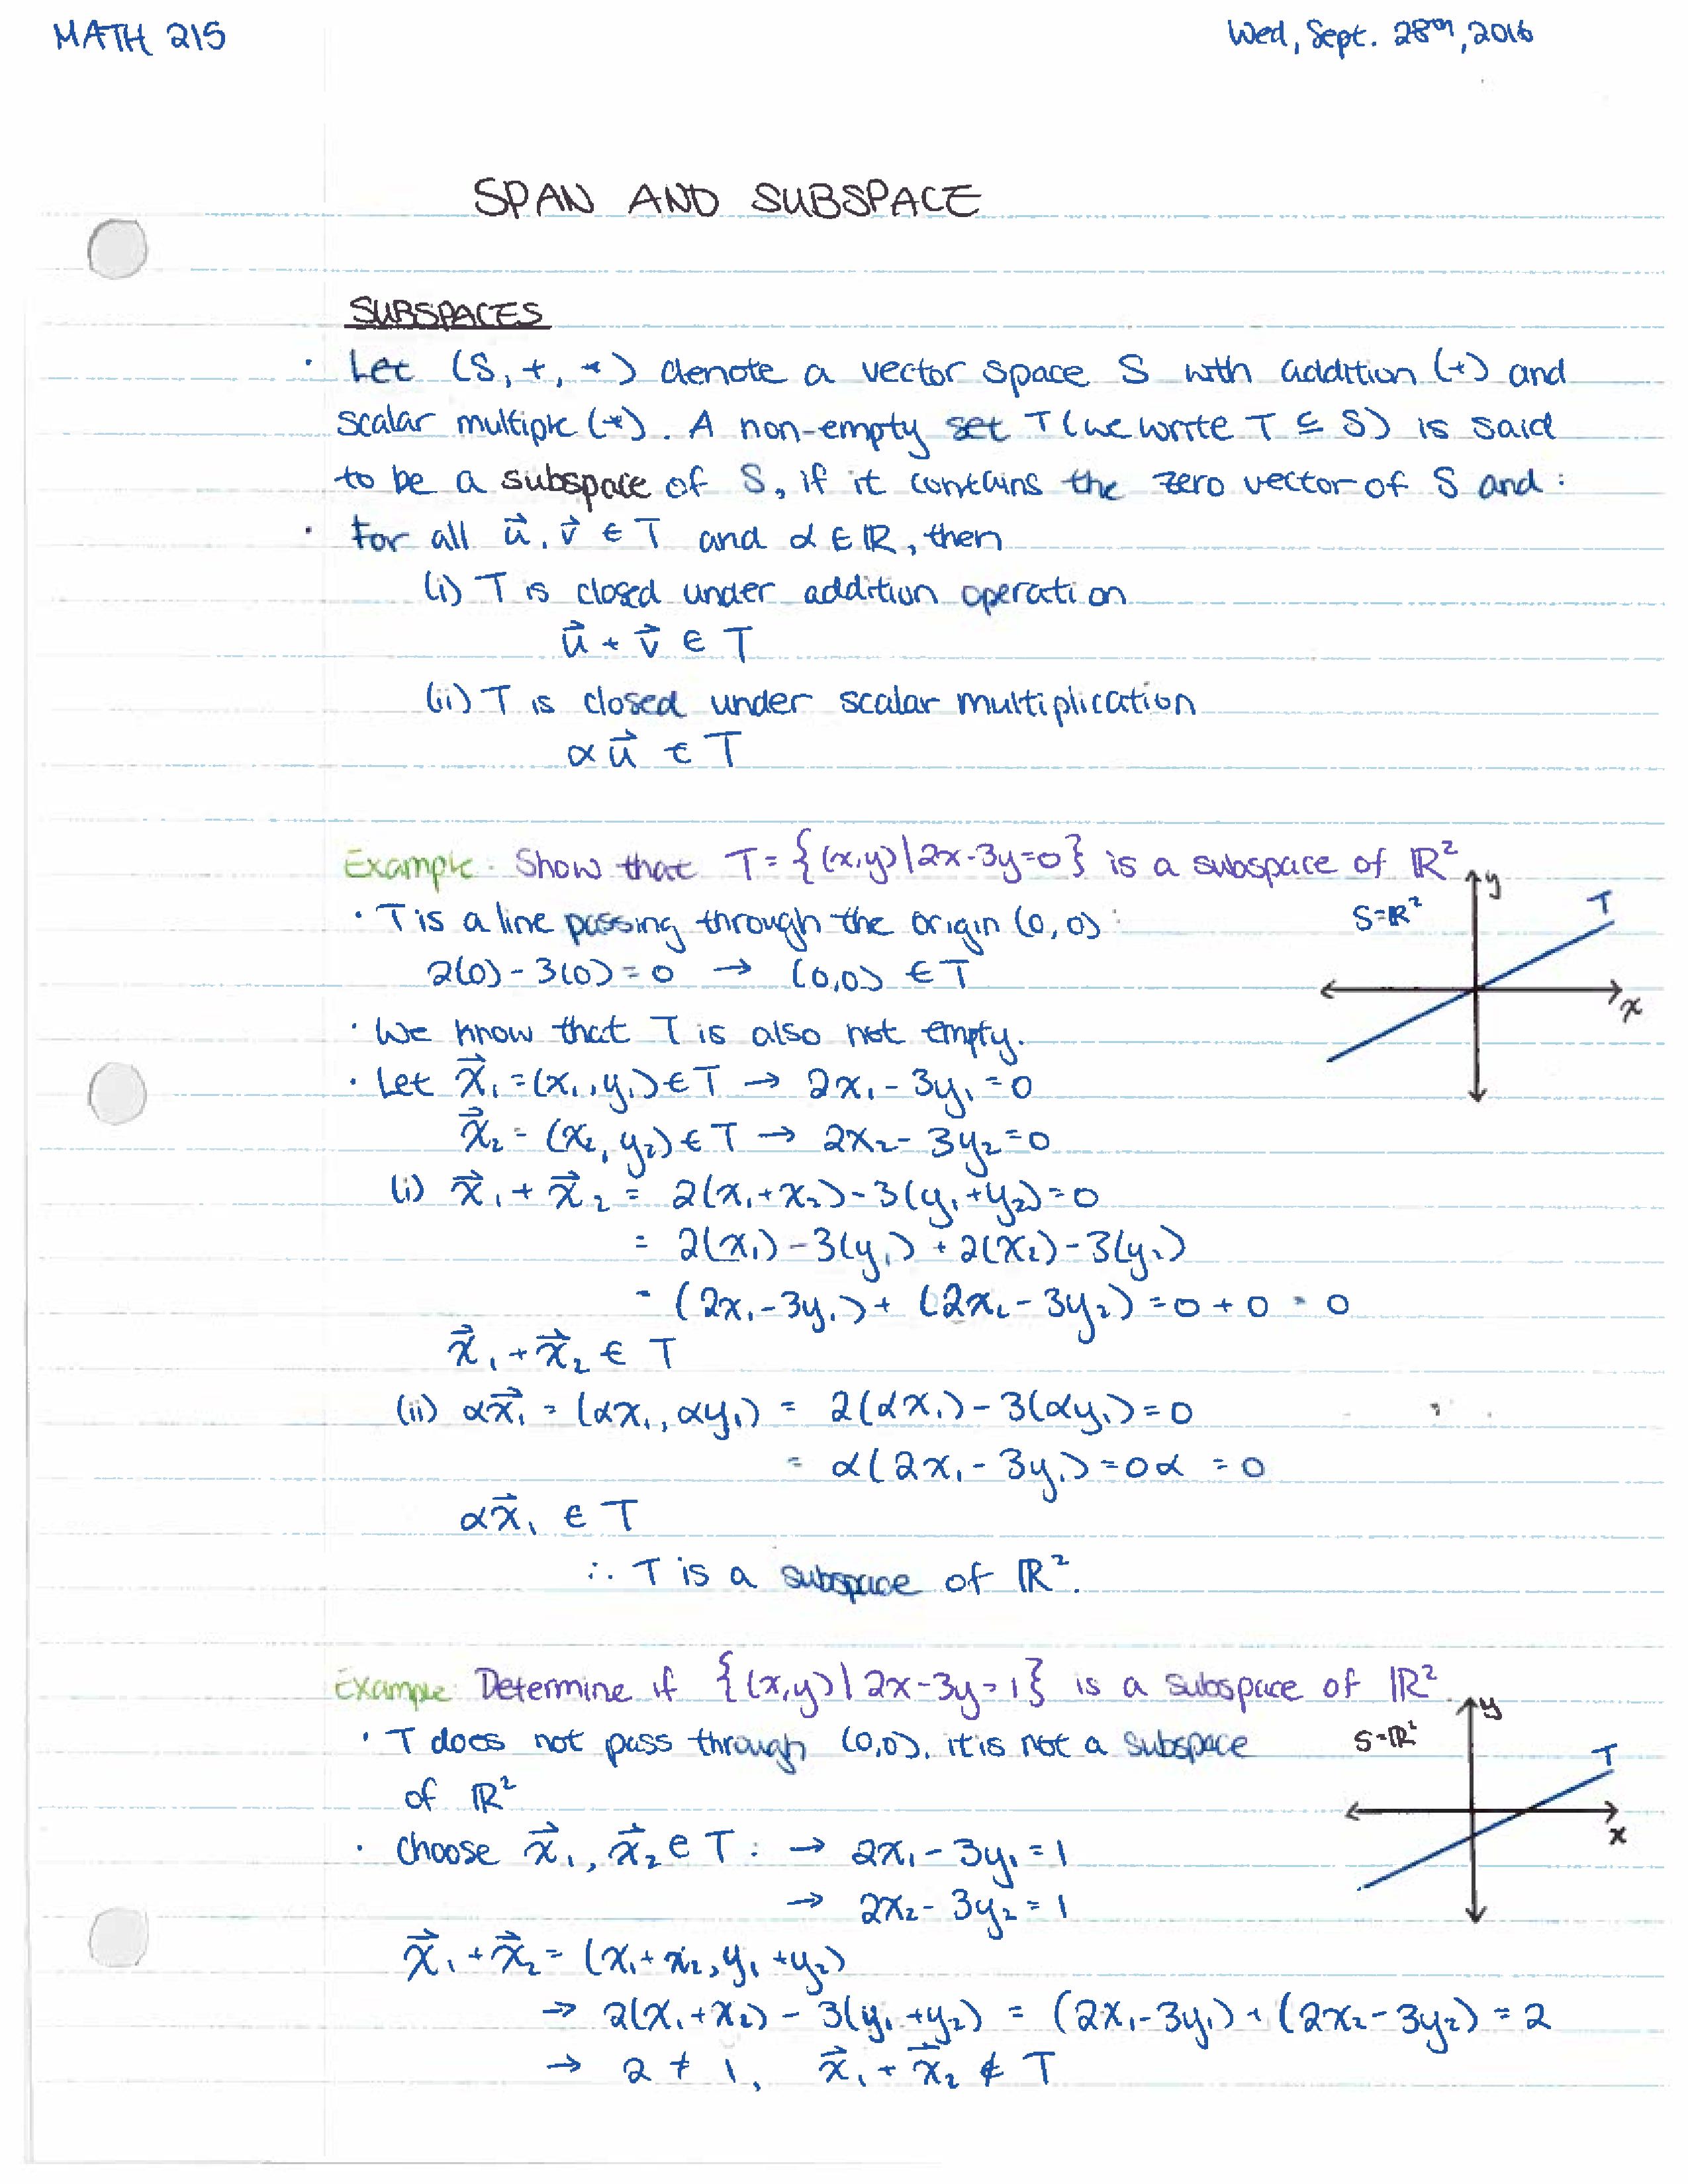 MATH 215
Wed, Sept. 28th, 2016
SPAN AND SUBSPACE
SUBSPACES
· Let (S, +, *) denote a vector space S with addition (+) and
scalar multiple (*). A non-empty set T (we write T ⊆ S) is said
to be a subspace of S, if it contains the zero vector of S and:
· For all u⃗, v⃗ ∈ T and α ∈ ℝ, then
(i) T is closed under addition operation
u⃗ + v⃗ ∈ T
(ii) T is closed under scalar multiplication
αu⃗ ∈ T
Example: Show that T = {(x,y) | 2x-3y=0} is a subspace of ℝ²
y
S=ℝ²
T
x
· T is a line passing through the origin (0,0):
2(0) - 3(0) = 0 → (0,0) ∈ T
· We know that T is also not empty.
· Let x⃗₁ = (x₁, y₁) ∈ T → 2x₁ - 3y₁ = 0
x⃗₂ = (x₂, y₂) ∈ T → 2x₂ - 3y₂ = 0
(i) x⃗₁ + x⃗₂ = 2(x₁+x₂) - 3(y₁+y₂) = 0
= 2(x₁) - 3(y₁) + 2(x₂) - 3(y₂)
= (2x₁ - 3y₁) + (2x₂ - 3y₂) = 0 + 0 = 0
x⃗₁ + x⃗₂ ∈ T
(ii) αx⃗₁ = (αx₁, αy₁) = 2(αx₁) - 3(αy₁) = 0
= α(2x₁ - 3y₁) = 0α = 0
αx⃗₁ ∈ T
∴ T is a subspace of ℝ².
Example: Determine if {(x,y) | 2x-3y=1} is a subspace of ℝ².
y
S=ℝ²
T
x
· T does not pass through (0,0), it is not a subspace
of ℝ²
· Choose x⃗₁, x⃗₂ ∈ T: → 2x₁ - 3y₁ = 1
→ 2x₂ - 3y₂ = 1
x⃗₁ + x⃗₂ = (x₁ + x₂, y₁ + y₂)
→ 2(x₁+x₂) - 3(y₁+y₂) = (2x₁-3y₁) + (2x₂-3y₂) = 2
→ 2 ≠ 1, x⃗₁ + x⃗₂ ∉ T